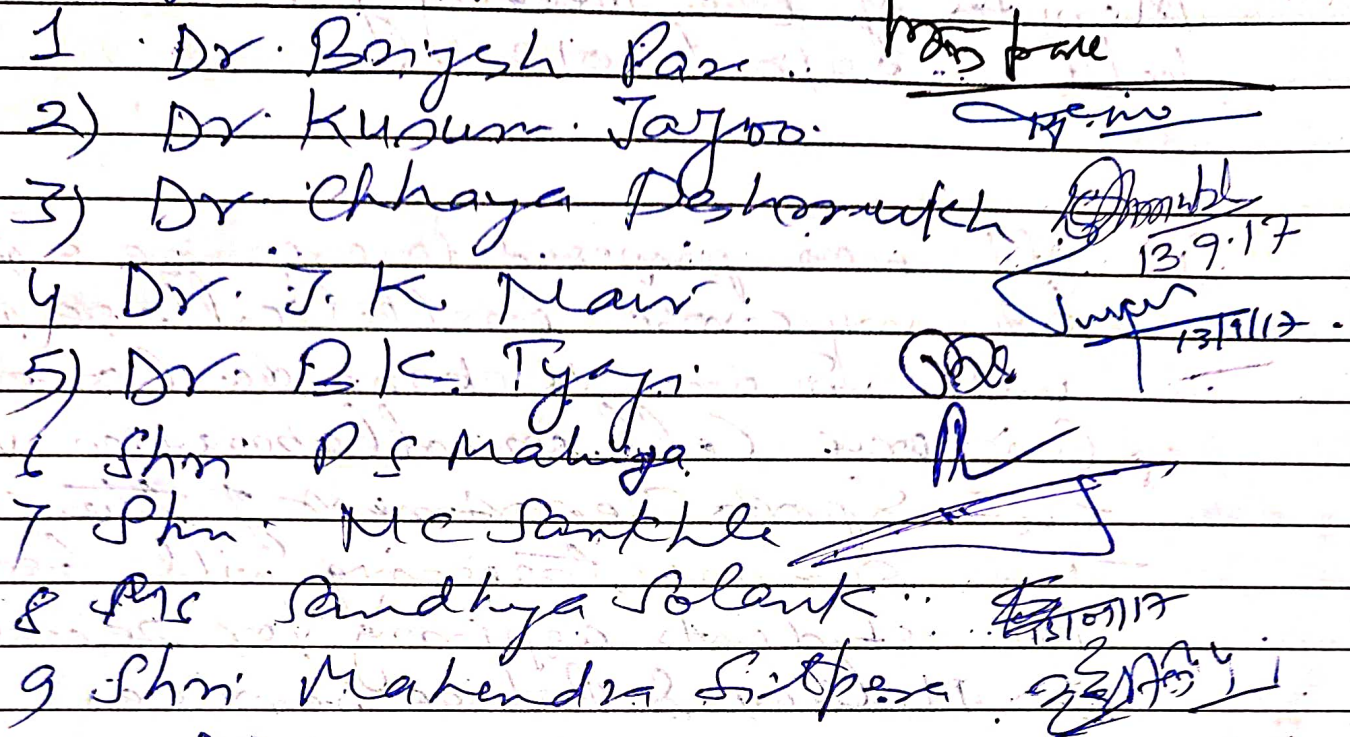 1 Dr. Brijesh Pare ..
2) Dr. Kusum. Jajoo.
3) Dr. Chhaya Deshmukh
13.9.17
4 Dr. J. K. Nair.
13/9/17.
5) Dr. B K. Tyagi
6 Shri P S Maliya
7 Shri MC Sankhle
8 Ms Sandhya Solank ..
13/09/17
9 Shri Mahendra